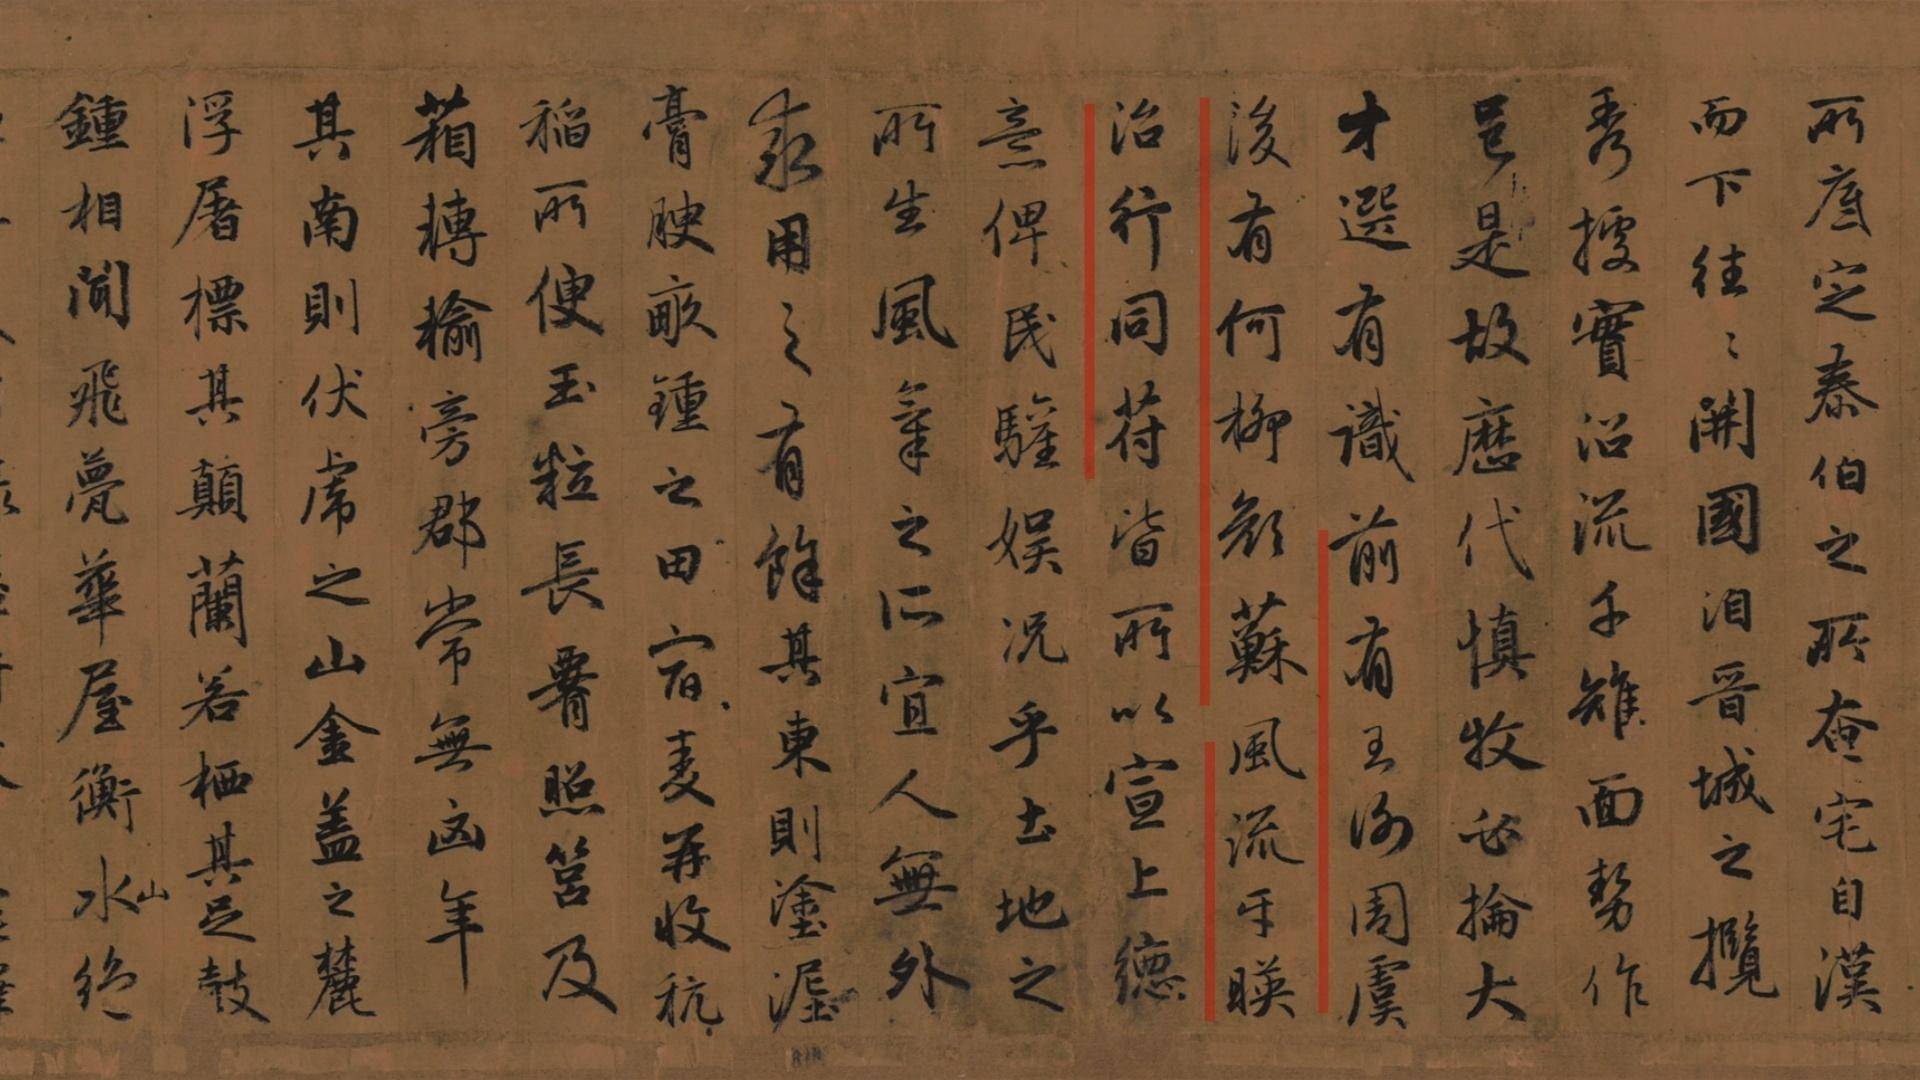 所底定泰伯之所奄宅自漢
而下往々開國洎晋城之攬
秀據實沿流千雉面勢作
邑是故歷代慎牧必掄大
才選有識前有王謝周虞
後有何柳顏蘇風流互暎
治行同符皆所以宣上德
意俾民驩娱况乎土地之
所生風氣之所宜人無外
求用之有餘其東則塗泥
膏腴畝鍾之田宿麦再收秔
稻所便玉粒長署照筥及
箱轉輸旁郡常無凶年
其南則伏虎之山金盖之麓
浮屠標其顛蘭若栖其足鼓
鍾相聞飛甍華屋衡山水